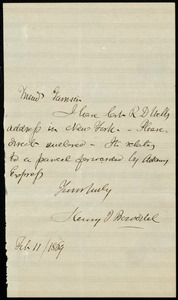 Friend Garrison
I leave Capt R D Wells
address in New York. - Please
direct enclosed - Its relating
to a parcel forwarded by Adams
Express
Yours truly
Henry I Bowditch
Feb 11/1859